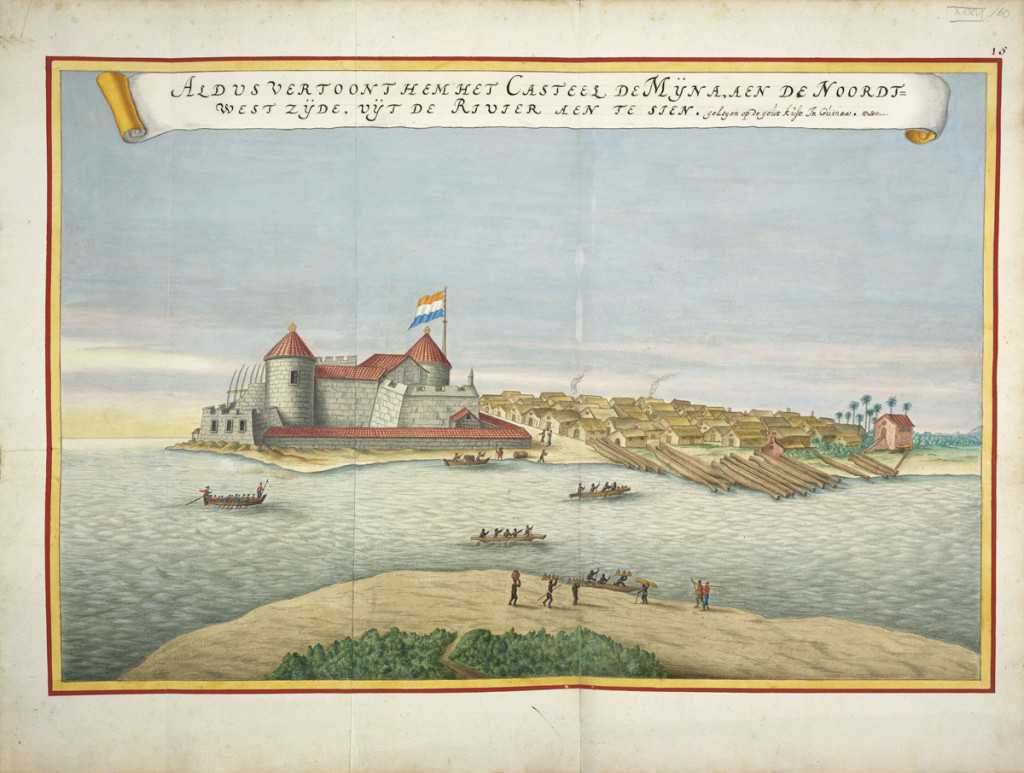 160
15
ALDUS VERTOONT HEM HET CASTEEL DE MŸNA, AEN DE NOORDT=
WEST ZŸDE, VŸT DE RIVIER AEN TE SIEN. gelegen op de gout kust In Guinea.